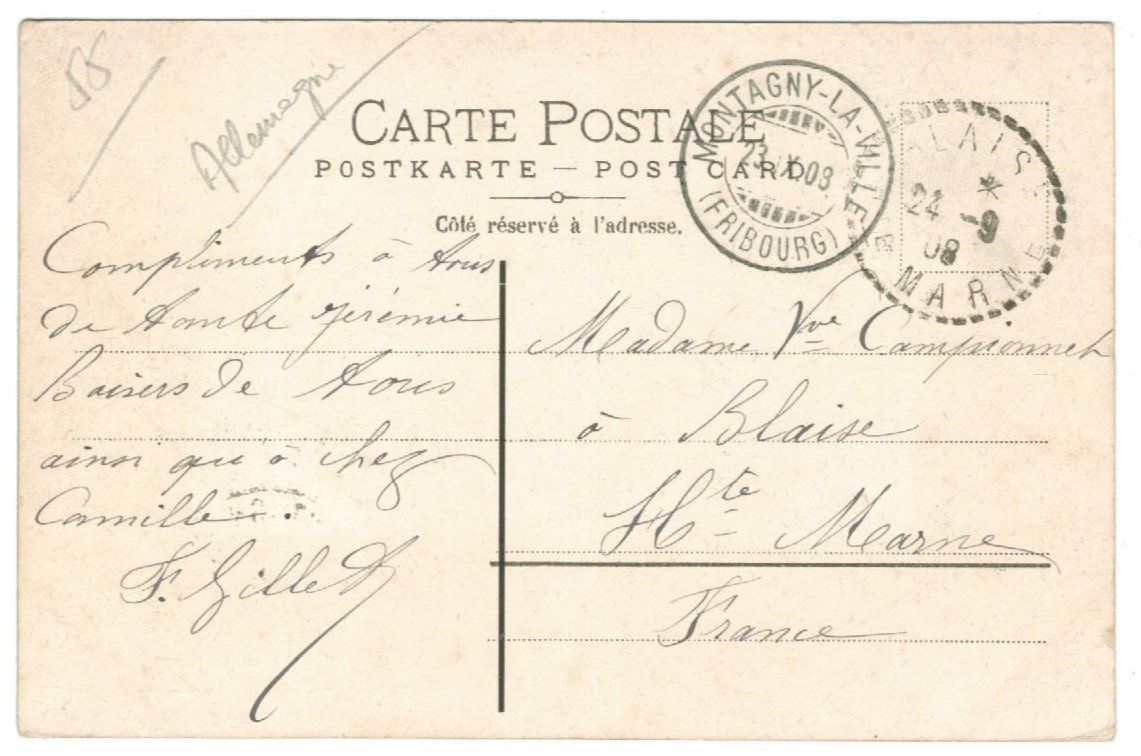 58
Allemagne
CARTE POSTALE
POSTKARTE — POST CARD
Côté réservé à l'adresse.
MONTAGNY-LA-VILLE
23.IX.08
(FRIBOURG)
BLAISE
24 -9
08
Hte MARNE
Compliments à tous
de tante Jérémie
Baisers de tous
ainsi qu'à chez
Camille.
F. Gillet
Madame Vve Campionnet
à Blaise
Hte Marne
France